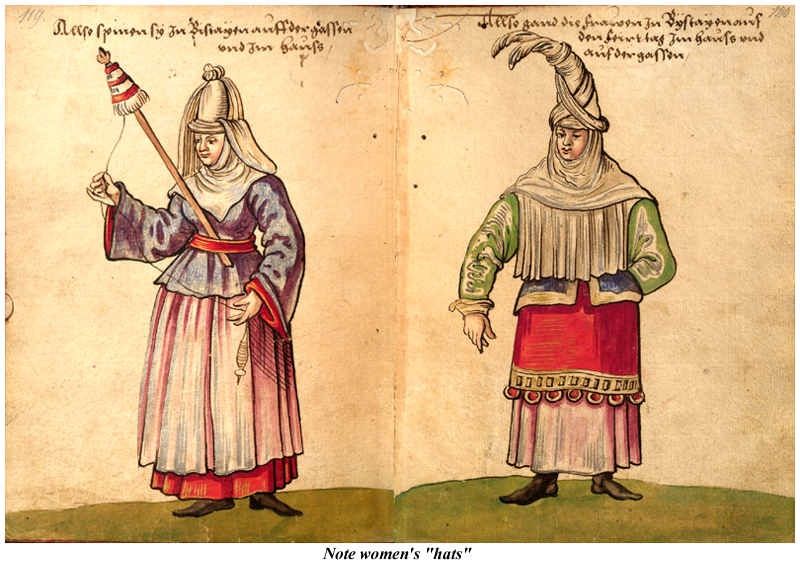 119.
Allso spinen sy In Bistayen auff der gassen
und Im hauss,
120
Allso gand die frawen In Bystayen auf
den feirtag Im hauss und
auf der gassen,
Note women's "hats"